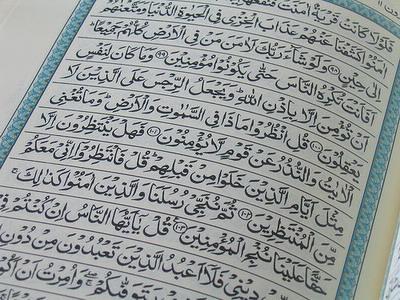 فَلَوْلَا كَانَتْ قَرْيَةٌ اٰمَنَتْ فَنَفَعَهَا
اٰمَنُوا كَشَفْنَا عَنْهُمْ عَذَابَ الْخِزْىِ فِى الْحَيٰوةِ الدُّنْيَا وَمَتَّعْنَاهُمْ
اِلٰى حٖينٍ ﴿٩٨﴾ وَلَوْ شَاءَ رَبُّكَ لَاٰمَنَ مَنْ فِى الْاَرْضِ كُلُّهُمْ جَمٖيعًا
اَفَاَنْتَ تُكْرِهُ النَّاسَ حَتّٰى يَكُونُوا مُؤْمِنٖينَ ﴿٩٩﴾ وَمَا كَانَ لِنَفْسٍ
اَنْ تُؤْمِنَ اِلَّا بِاِذْنِ اللّٰهِ وَيَجْعَلُ الرِّجْسَ عَلَى الَّذٖينَ لَا
يَعْقِلُونَ ﴿١٠٠﴾ قُلِ انْظُرُوا مَاذَا فِى السَّمٰوَاتِ وَالْاَرْضِ وَمَا تُغْنِى
الْاٰيَاتُ وَالنُّذُرُ عَنْ قَوْمٍ لَا يُؤْمِنُونَ ﴿١٠١﴾ فَهَلْ يَنْتَظِرُونَ اِلَّا
مِثْلَ اَيَّامِ الَّذٖينَ خَلَوْا مِنْ قَبْلِهِمْ قُلْ فَانْتَظِرُوا اِنّٖى مَعَكُمْ
مِنَ الْمُنْتَظِرٖينَ ﴿١٠٢﴾ ثُمَّ نُنَجّٖى رُسُلَنَا وَالَّذٖينَ اٰمَنُوا كَذٰلِكَ
حَقًّا عَلَيْنَا نُنْجِ الْمُؤْمِنٖينَ ﴿١٠٣﴾ قُلْ يَا اَيُّهَا النَّاسُ اِنْ كُنْتُمْ فٖى
دٖينٖى فَلَا اَعْبُدُ الَّذٖينَ تَعْبُدُونَ مِنْ دُونِ
يَتَوَفّٰيكُمْ وَاُمِرْتُ اَنْ اَكُونَ